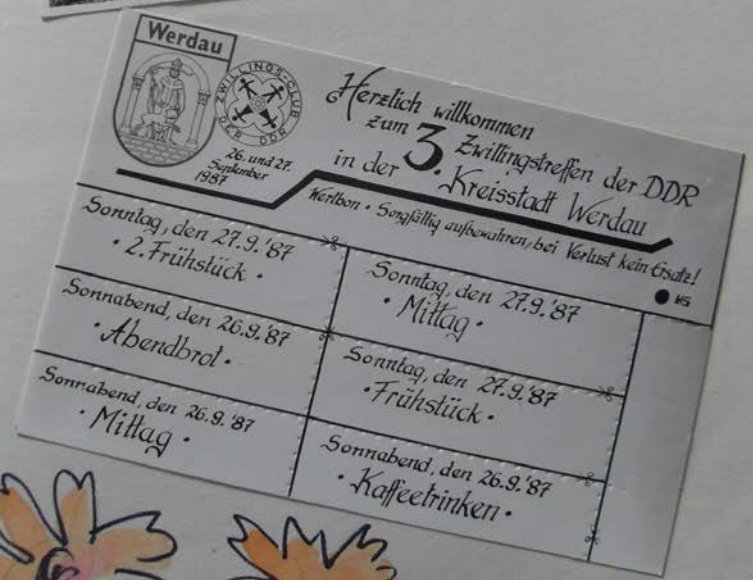 Werdau
ZWILLINGS-CLUB
DER DDR
26. und 27.
September
1987
Herzlich willkommen
zum 3. Zwillingstreffen der DDR
in der Kreisstadt Werdau
Wertbon • Sorgfältig aufbewahren, bei Verlust kein Ersatz!
Sonntag, den 27.9.'87
• 2. Frühstück •
Sonntag, den 27.9.'87
• Mittag •
Sonnabend, den 26.9.'87
• Abendbrot •
Sonntag, den 27.9.'87
• Frühstück •
Sonnabend, den 26.9.'87
• Mittag •
Sonnabend, den 26.9.'87
• Kaffeetrinken •